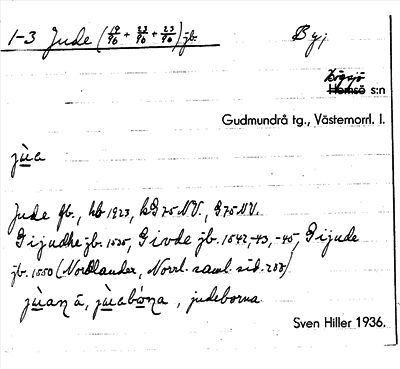 1-3 Jude (19/96 + 23/96 + 23/96) jb. By,
Högsjö
Hemsö s:n
Gudmundrå tg., Västernorrl. l.
jùa
Jude jb., hb 1923, kG 75 NV., G 75 NV.
Gijudhe jb. 1535, Givde jb. 1542, -43, -45, Gijude
jb. 1550 (Nordlander, Norrl. saml. sid. 288)
jùaṉ ā, jùabòna, judeborna
Sven Hiller 1936.